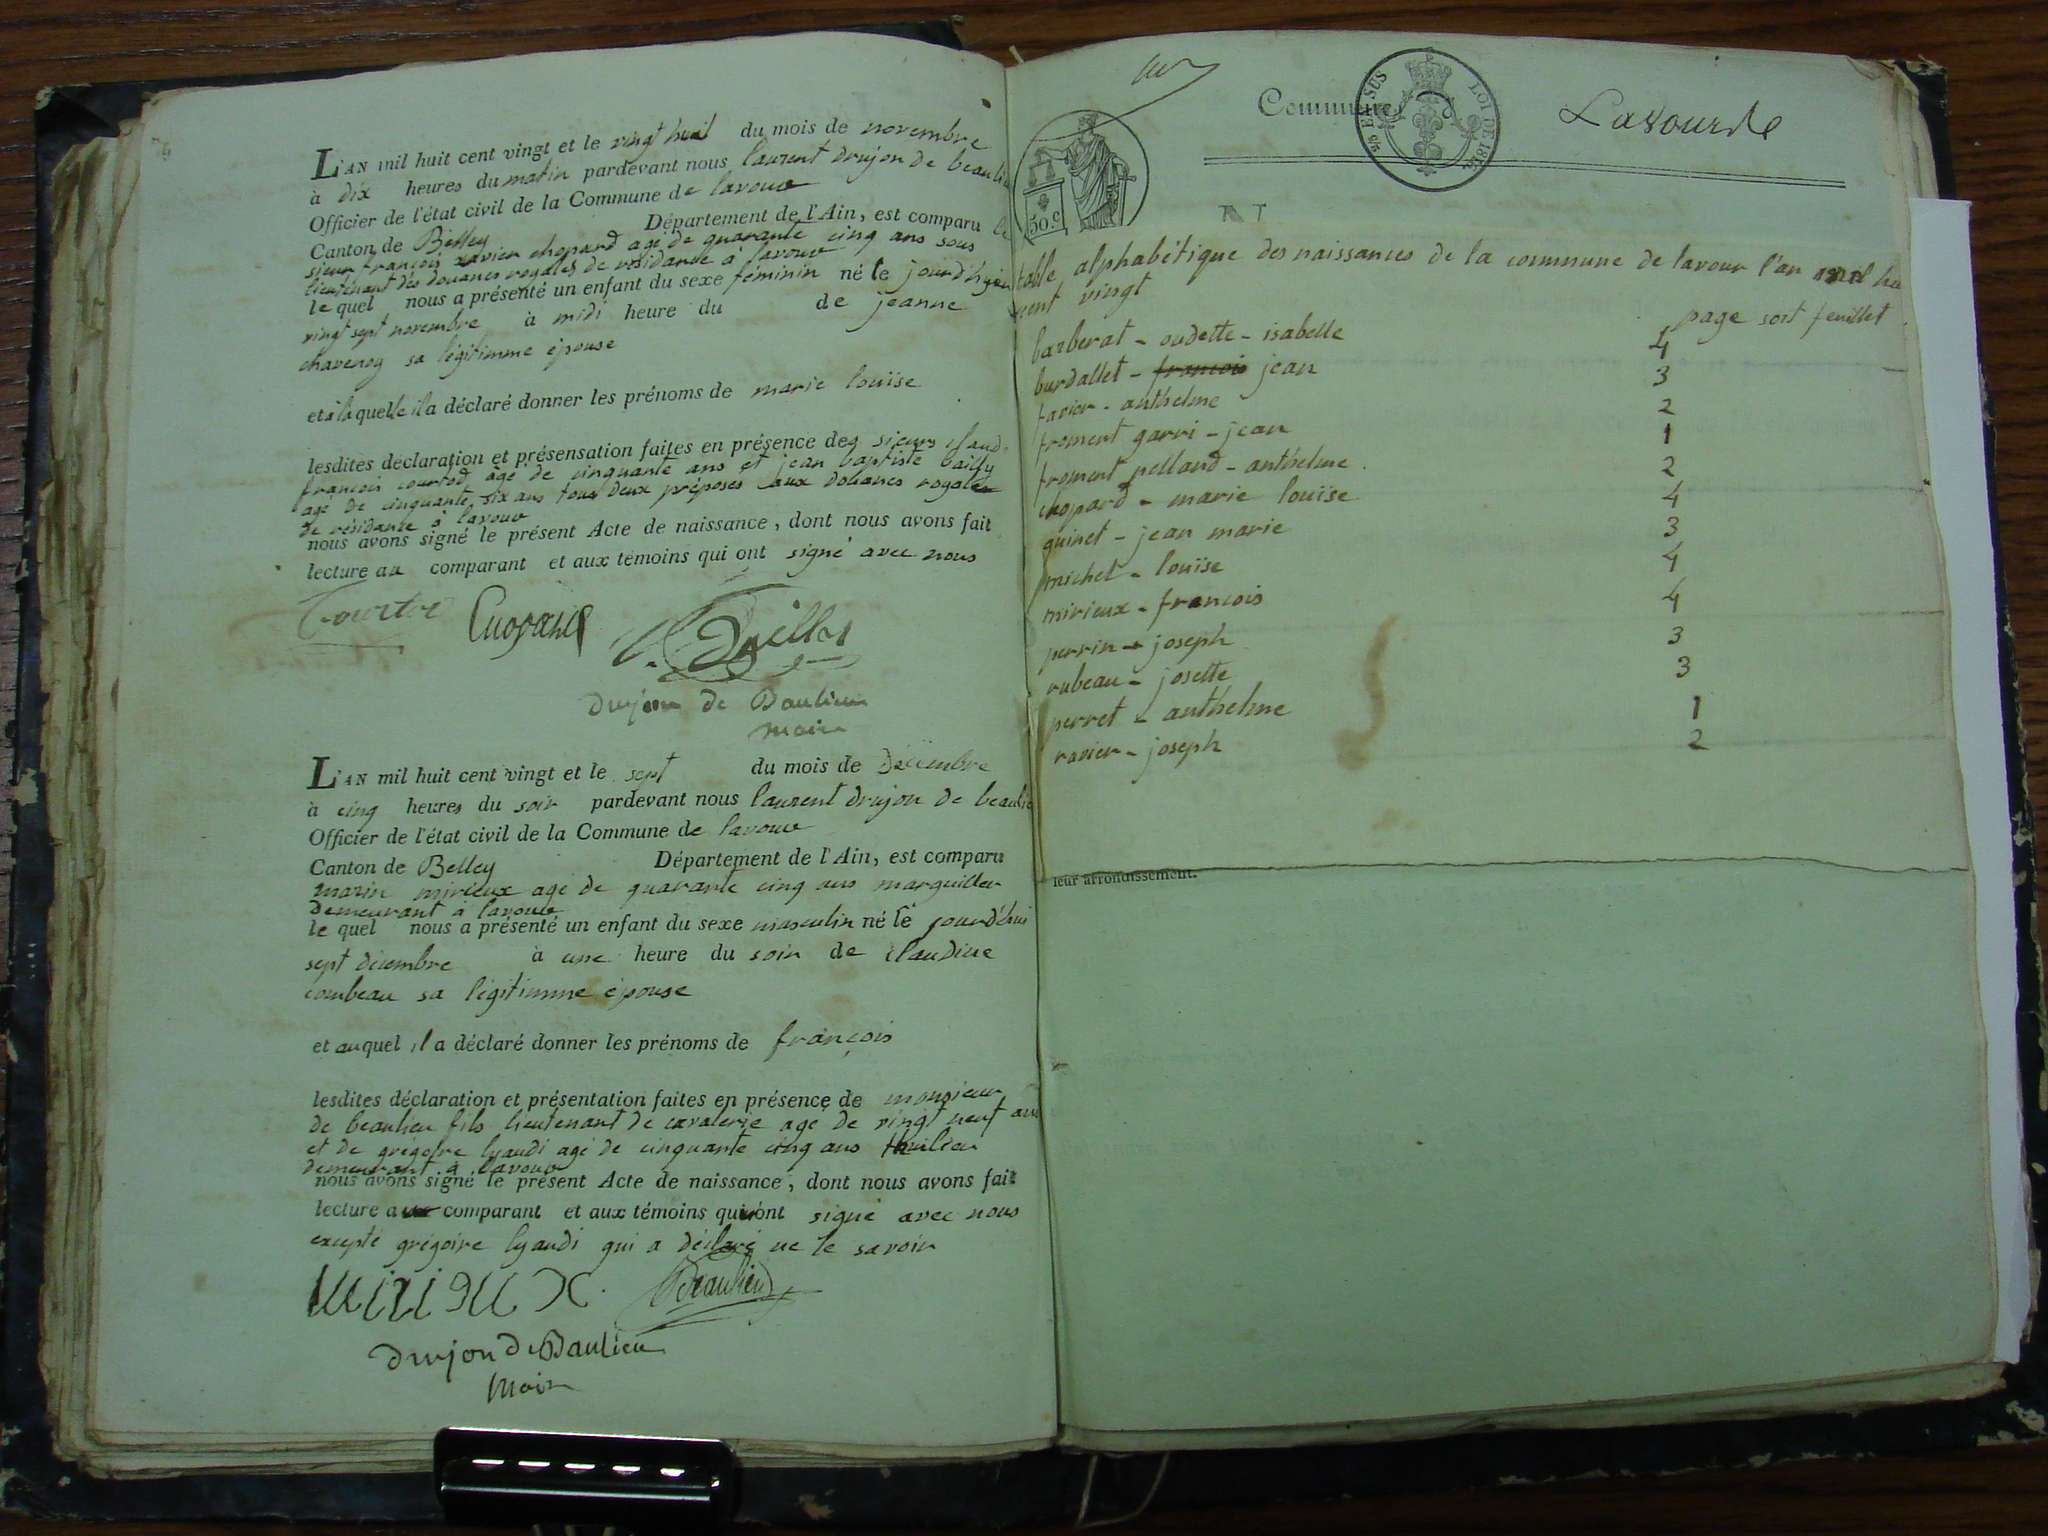 L'AN mil huit cent vingt et le vingt huit du mois de novembre
à dix heures du matin pardevant nous laurent drujon de beaulieu
Officier de l'état civil de la Commune de lavour
Canton de Belley Département de l'Ain, est comparu le
sieur françois xavier chopard agé de quarante cinq ans sous
lieutenant des douanes royales de résidance a lavour
le quel nous a présenté un enfant du sexe féminin né le jourd'hyier
vingt sept novembre à midi heure du de jeanne
chaveroy sa légitimme épouse
et à la quelle il a déclaré donner les prénoms de marie louise
lesdites déclaration et présensation faites en présence des sieurs claud
françois courtod âgé de cinquante ans et jean baptiste bailly
agé de cinquante six ans tous deux préposés aux douanes royales
de résidance à lavour
nous avons signé le présent Acte de naissance, dont nous avons fait
lecture au comparant et aux témoins qui ont signé avec nous
Courtod Chopard
drujon de Baulieu
maire
L'AN mil huit cent vingt et le sept du mois de décembre
à cinq heures du soir pardevant nous laurent drujon de beaulieu
Officier de l'état civil de la Commune de lavour
Canton de Belley Département de l'Ain, est comparu
marin mirieux agé de quarante cinq ans marguiller
demeurant à lavour
le quel nous a présenté un enfant du sexe masculin né le jourd'hui
sept décembre à une heure du soir de claudine
combeau sa légitimme épouse
et auquel il a déclaré donner les prénoms de françois
lesdites déclaration et présentation faites en présence de monsieur
de beaulieu fils lieutenant de cavalerie agé de vingt neuf ans
et de grégoire lyaudi agé de cinquante cinq ans thuilieu
demeurant à lavour
nous avons signé le présent Acte de naissance, dont nous avons fait
lecture au comparant et aux témoins qui ont signé avec nous
excepté grégoire lyaudi qui a déclaré ne le savoir
MiriEUX. Beaulieu
drujon de Baulieu
Maire
Commune Lavour de
25 EN SUS LOI DE 1816
50.c
table alphabétique des naissances de la commune de lavour l'an mil hui
cent vingt
page soit feuillet
barberat - oudette - isabelle 4
burdallet - francois jean 3
favier - anthelme 2
froment garri - jean 1
froment pelland - anthelme 2
chopard - marie louise 4
guinet - jean marie 3
michet - louise 4
mirieux - francois 4
perrin - joseph 3
rubeau - josette 3
perret - anthelme 1
ravier - joseph 2
leur arrondissement.